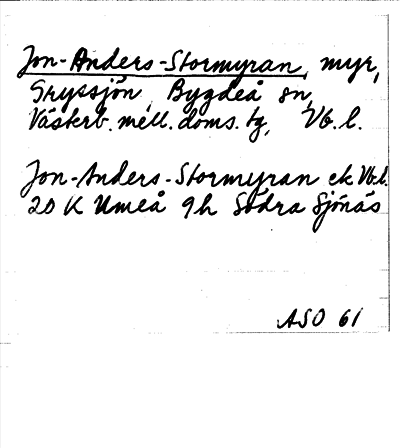 Jon-Anders-Stormyran, myr,
Gryssjön, Bygdeå sn,
Västerb. mell. doms. tg, Vb. l.
Jon-Anders-Stormyran ek Vb.l.
20 K Umeå 9h Södra Sjönäs
ASO 61